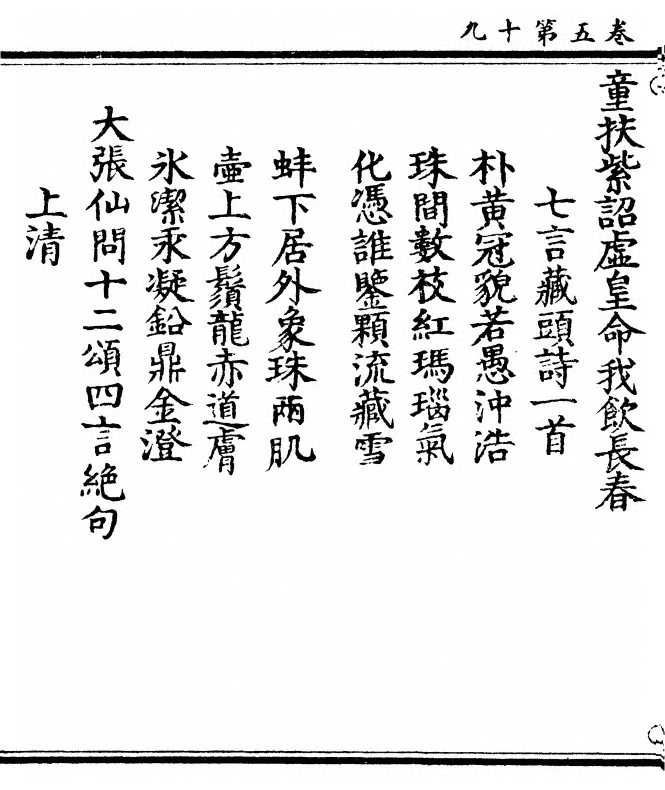 卷五第十九
童扶紫詔虛皇命我飲長春
七言藏頭詩一首
朴黃冠貌若愚沖浩
珠間數枝紅瑪瑙氣
化憑誰鑒顆流藏雪
蚌下居外象珠兩肌
壺上方鬚龍赤道膚
氷潔汞凝鉛鼎金澄
大張仙問十二頌四言絶句
上清